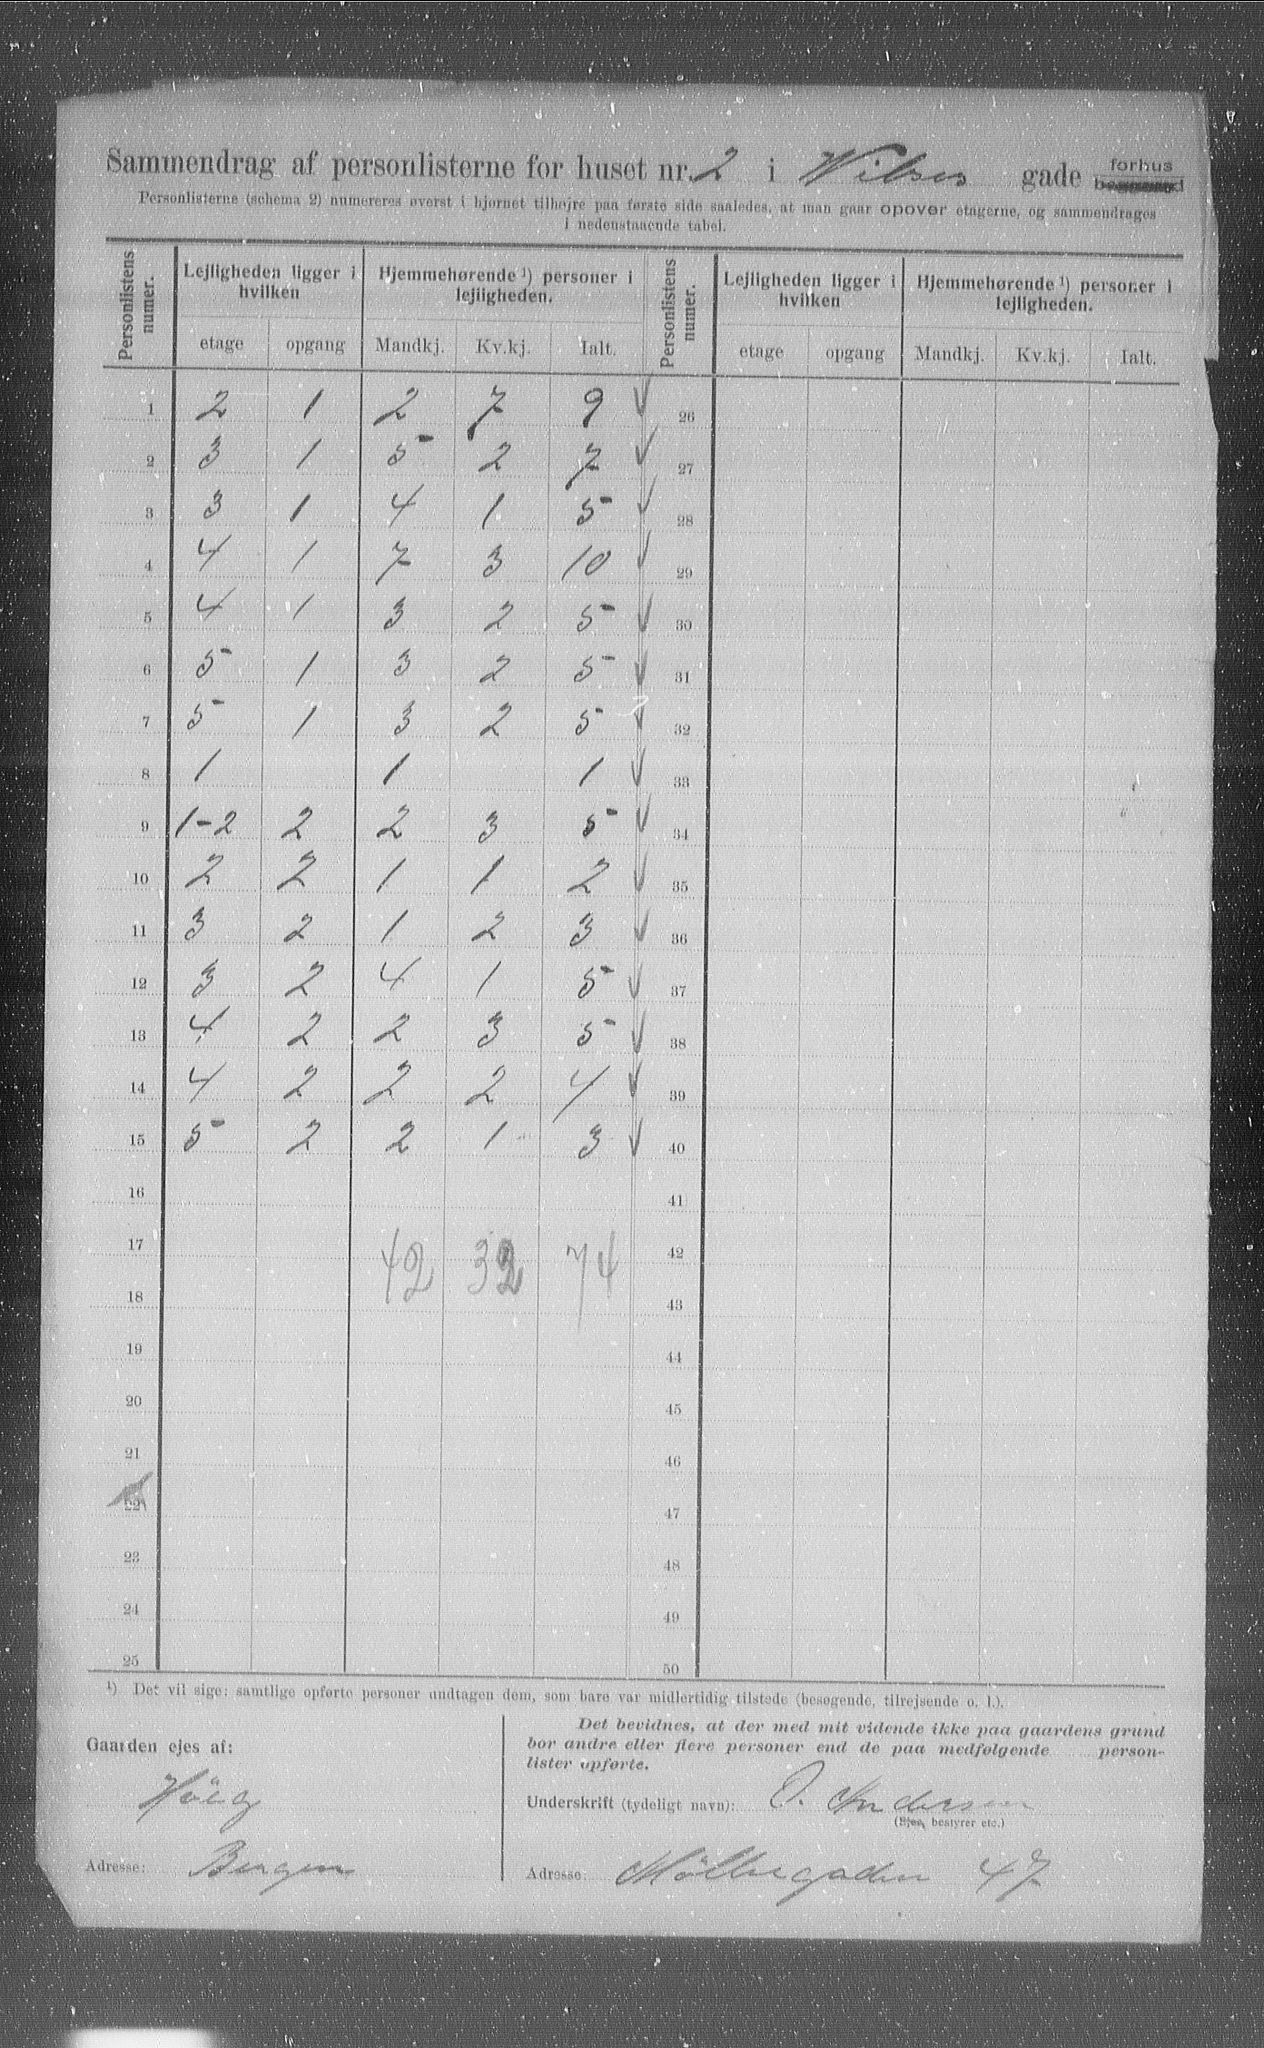 Sammendrag af personlisterne for huset nr. 2 i Wilses gade forhus
Personlisterne (schema 2) numereres øverst i hjørnet tilhøjre paa første side saaledes, at man gaar opover etagerne, og sammendrages
i nedenstaaende tabel.
Personlistens numer. Lejligheden ligger i hvilken Hjemmehørende ¹) personer i lejligheden. Personlistens numer. Lejligheden ligger i hvilken Hjemmehørende ¹) personer i lejligheden.
etage opgang Mandkj. Kv.kj. Ialt. etage opgang Mandkj. Kv.kj. Ialt.
1 2 1 2 7 9 ✓ 26
2 3 1 5 2 7 ✓ 27
3 3 1 4 1 5 ✓ 28
4 4 1 7 3 10 ✓ 29
5 4 1 3 2 5 ✓ 30
6 5 1 3 2 5 ✓ 31
7 5 1 3 2 5 ✓ 32
8 1 1 1 ✓ 33
9 1-2 2 2 3 5 ✓ 34
10 2 2 1 1 2 ✓ 35
11 3 2 1 2 3 ✓ 36
12 3 2 4 1 5 ✓ 37
13 4 2 2 3 5 ✓ 38
14 4 2 2 2 4 ✓ 39
15 5 2 2 1 3 ✓ 40
16 41
17 42 32 74 42
18 43
19 44
20 45
21 46
22 47
23 48
24 49
25 50
¹) Det vil sige: samtlige opførte personer undtagen dem, som bare var midlertidig tilstede (besøgende, tilrejsende o. l.).
Gaarden ejes af:
Höeg
Adresse: Bergen
Det bevidnes, at der med mit vidende ikke paa gaardens grund
bor andre eller flere personer end de paa medfølgende person-
lister opførte.
Underskrift (tydeligt navn): O. Andersen
(Ejer, bestyrer etc.)
Adresse: Möllergaden 47